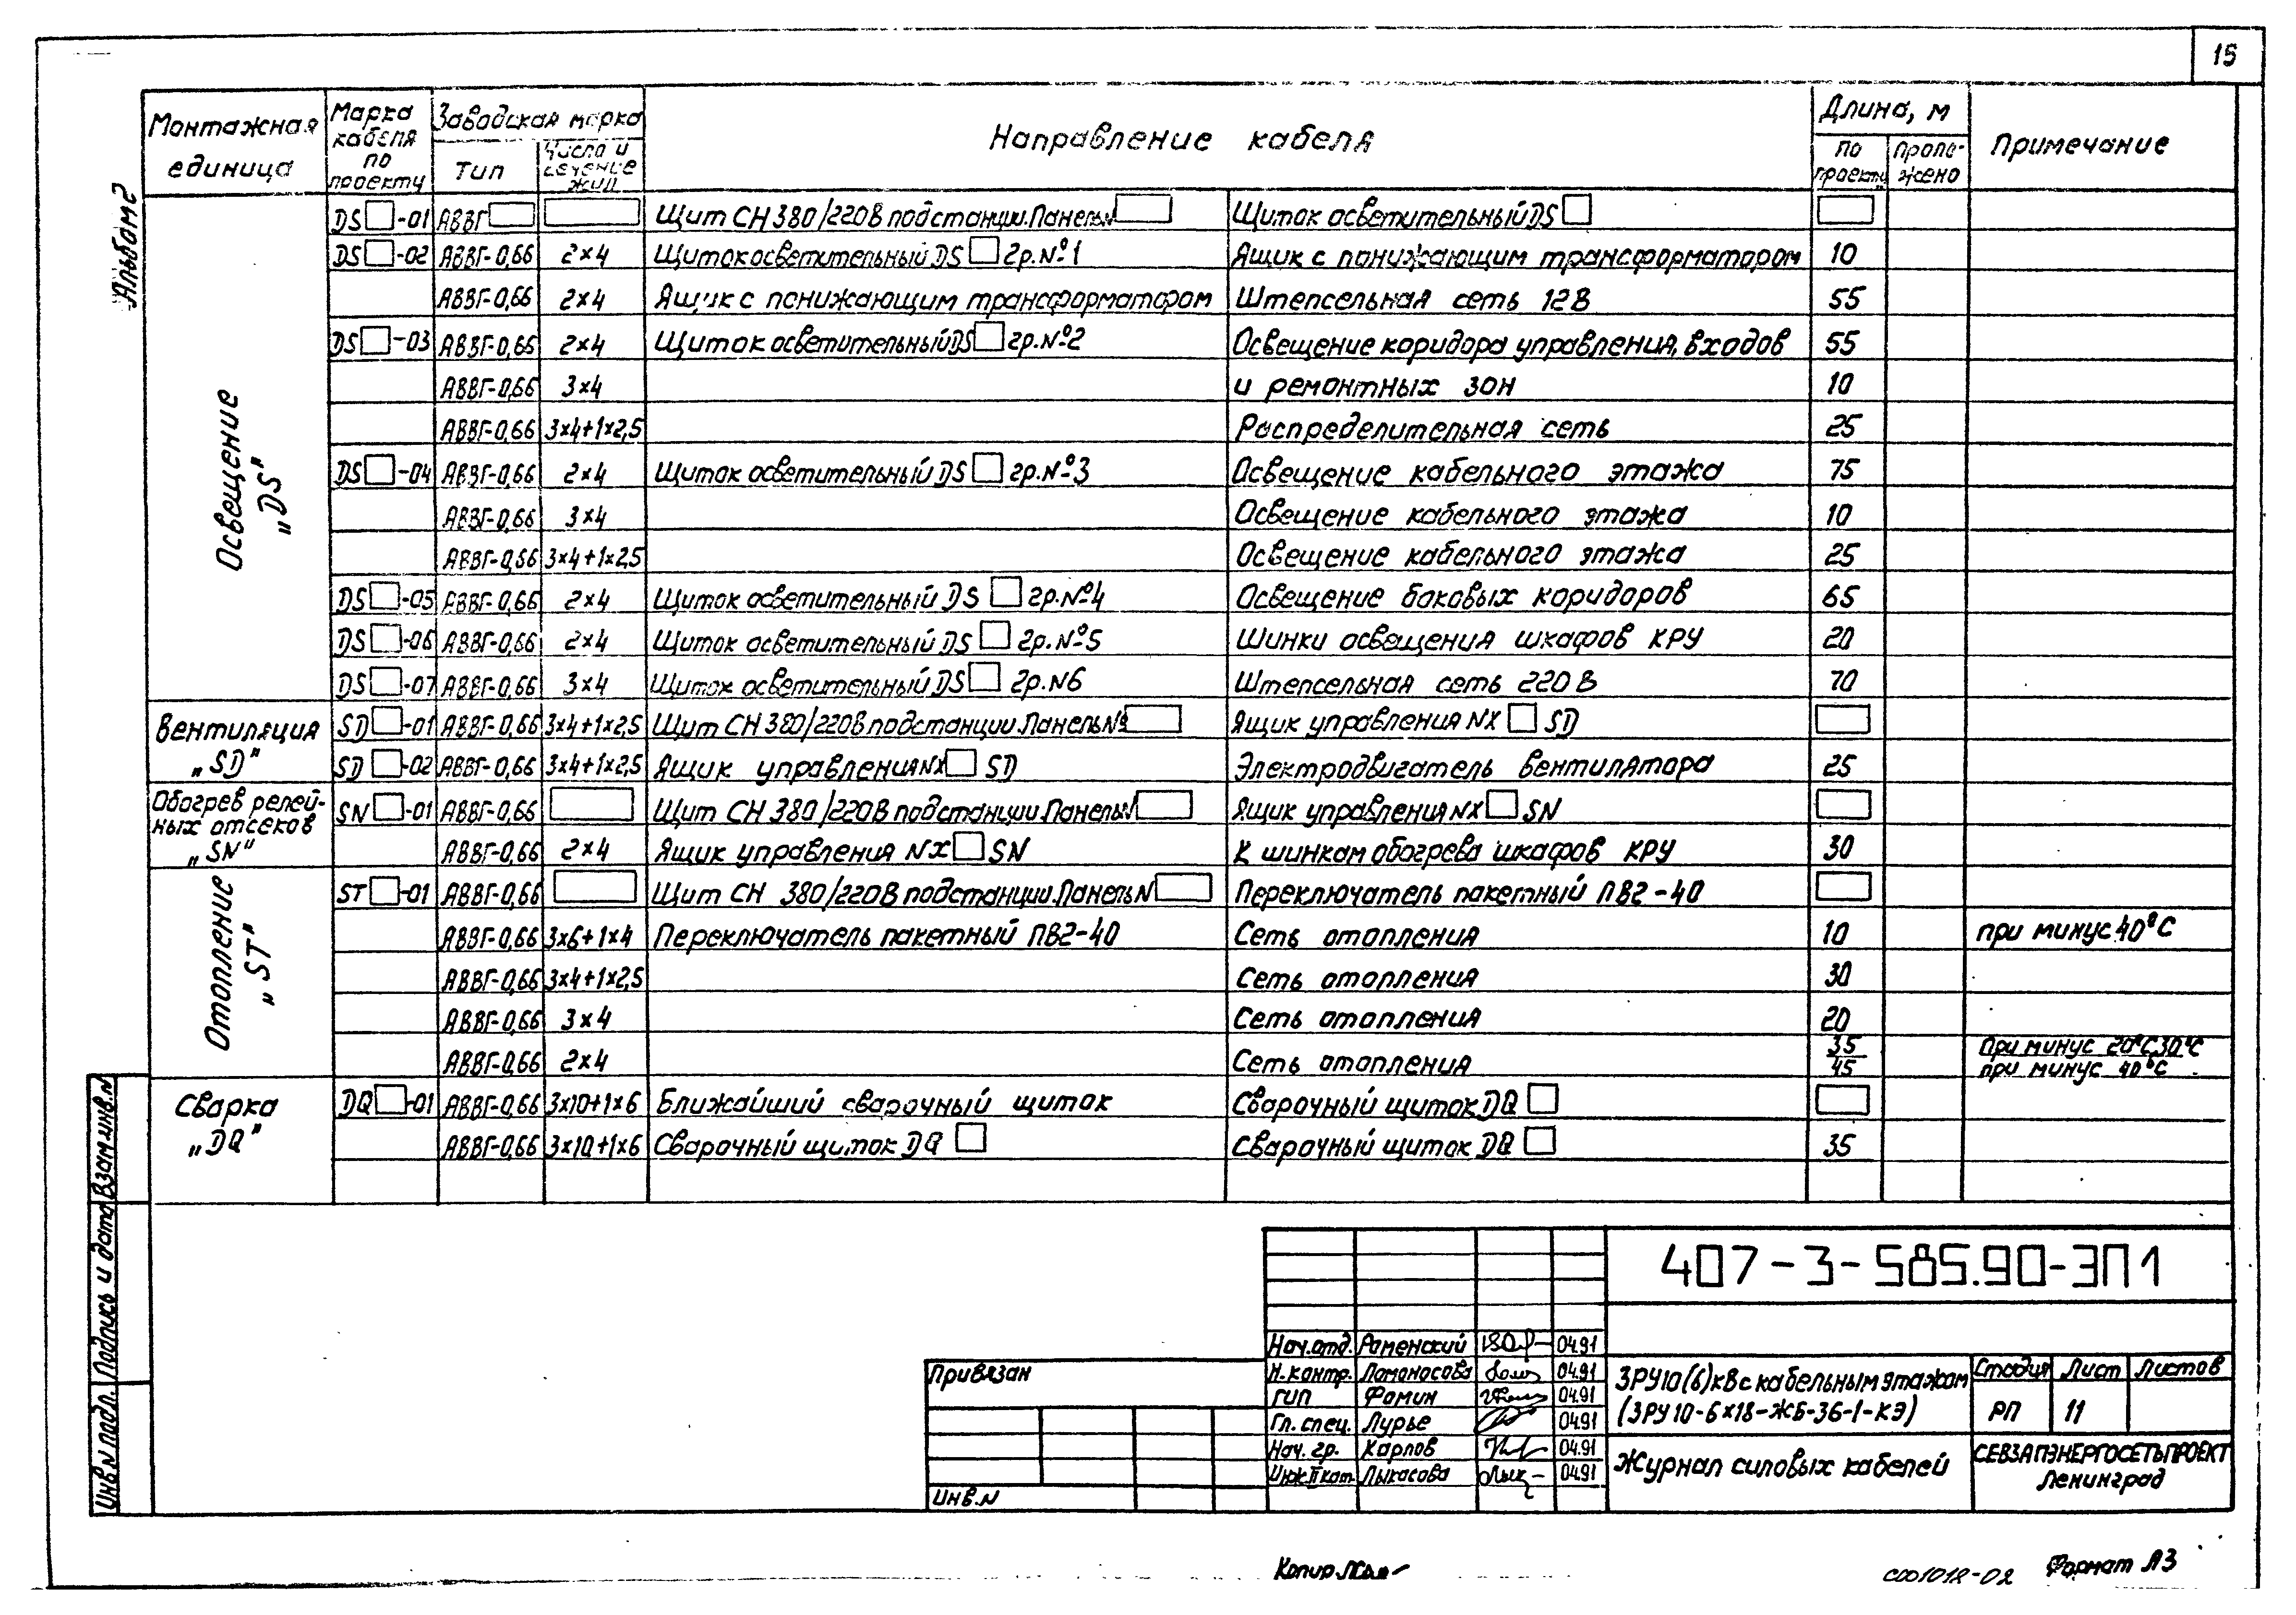 15
Альбом 2
Монтажная единица | Марка кабеля по проекту | Заводская марка | Направление кабеля | Длина, м | Примечание
Тип | Число и сечение жил | По проекту | Проложено
Освещение „DS”
DS □ -01 | АВВГ □ | □ | Щит СН 380/220В подстанции. Панель N □ | Щиток осветительный DS □ | □
DS □ -02 | АВВГ-0,66 | 2×4 | Щиток осветительный DS □ гр. №1 | Ящик с понижающим трансформатором | 10
АВВГ-0,66 | 2×4 | Ящик с понижающим трансформатором | Штепсельная сеть 12В | 55
DS □ -03 | АВВГ-0,66 | 2×4 | Щиток осветительный DS □ гр. №2 | Освещение коридора управления, входов | 55
АВВГ-0,66 | 3×4 | и ремонтных зон | 10
АВВГ-0,66 | 3×4+1×2,5 | Распределительная сеть | 25
DS □ -04 | АВВГ-0,66 | 2×4 | Щиток осветительный DS □ гр. №3 | Освещение кабельного этажа | 75
АВВГ-0,66 | 3×4 | Освещение кабельного этажа | 10
АВВГ-0,66 | 3×4+1×2,5 | Освещение кабельного этажа | 25
DS □ -05 | АВВГ-0,66 | 2×4 | Щиток осветительный DS □ гр. №4 | Освещение боковых коридоров | 65
DS □ -06 | АВВГ-0,66 | 2×4 | Щиток осветительный DS □ гр. №5 | Шинки освещения шкафов КРУ | 20
DS □ -07 | АВВГ-0,66 | 3×4 | Щиток осветительный DS □ гр. N6 | Штепсельная сеть 220В | 70
Вентиляция „SD”
SD □ -01 | АВВГ-0,66 | 3×4+1×2,5 | Щит СН 380/220В подстанции. Панель № □ | Ящик управления NX □ SD | □
SD □ -02 | АВВГ-0,66 | 3×4+1×2,5 | Ящик управления NX □ SD | Электродвигатель вентилятора | 25
Обогрев релейных отсеков „SN”
SN □ -01 | АВВГ-0,66 | □ | Щит СН 380/220В подстанции. Панель N □ | Ящик управления NX □ SN | □
АВВГ-0,66 | 2×4 | Ящик управления NX □ SN | К шинкам обогрева шкафов КРУ | 30
Отопление „ST”
ST □ -01 | АВВГ-0,66 | □ | Щит СН 380/220В подстанции. Панель N □ | Переключатель пакетный ПВ2-40 | □
АВВГ-0,66 | 3×6+1×4 | Переключатель пакетный ПВ2-40 | Сеть отопления | 10 | при минус 40°С
АВВГ-0,66 | 3×4+1×2,5 | Сеть отопления | 30
АВВГ-0,66 | 3×4 | Сеть отопления | 20
АВВГ-0,66 | 2×4 | Сеть отопления | 35 | При минус 20°С, 30°С
45 | при минус 40°С
Сварка „DQ”
DQ □ -01 | АВВГ-0,66 | 3×10+1×6 | Ближайший сварочный щиток | Сварочный щиток DQ □ | □
АВВГ-0,66 | 3×10+1×6 | Сварочный щиток DQ □ | Сварочный щиток DQ □ | 35
Инв. N подл. | Подпись и дата | Взам. инв. N
407-3-585.90-ЭП1
Нач. отд. Роменский 04.91
Н. контр. Ломоносова 04.91
ГИП Фомин 04.91
Гл. спец. Лурье 04.91
Нач. гр. Карлов 04.91
Инж. II кат. Лыкасова 04.91
Привязан
Инв. N
ЗРУ 10(6) кВ с кабельным этажом
(ЗРУ 10-6×18-ЖБ-36-1-КЭ)
Стадия | Лист | Листов
РП | 11
Журнал силовых кабелей
СЕВЗАПЭНЕРГОСЕТЬПРОЕКТ
Ленинград
Копир.
С001018-02
Формат А3